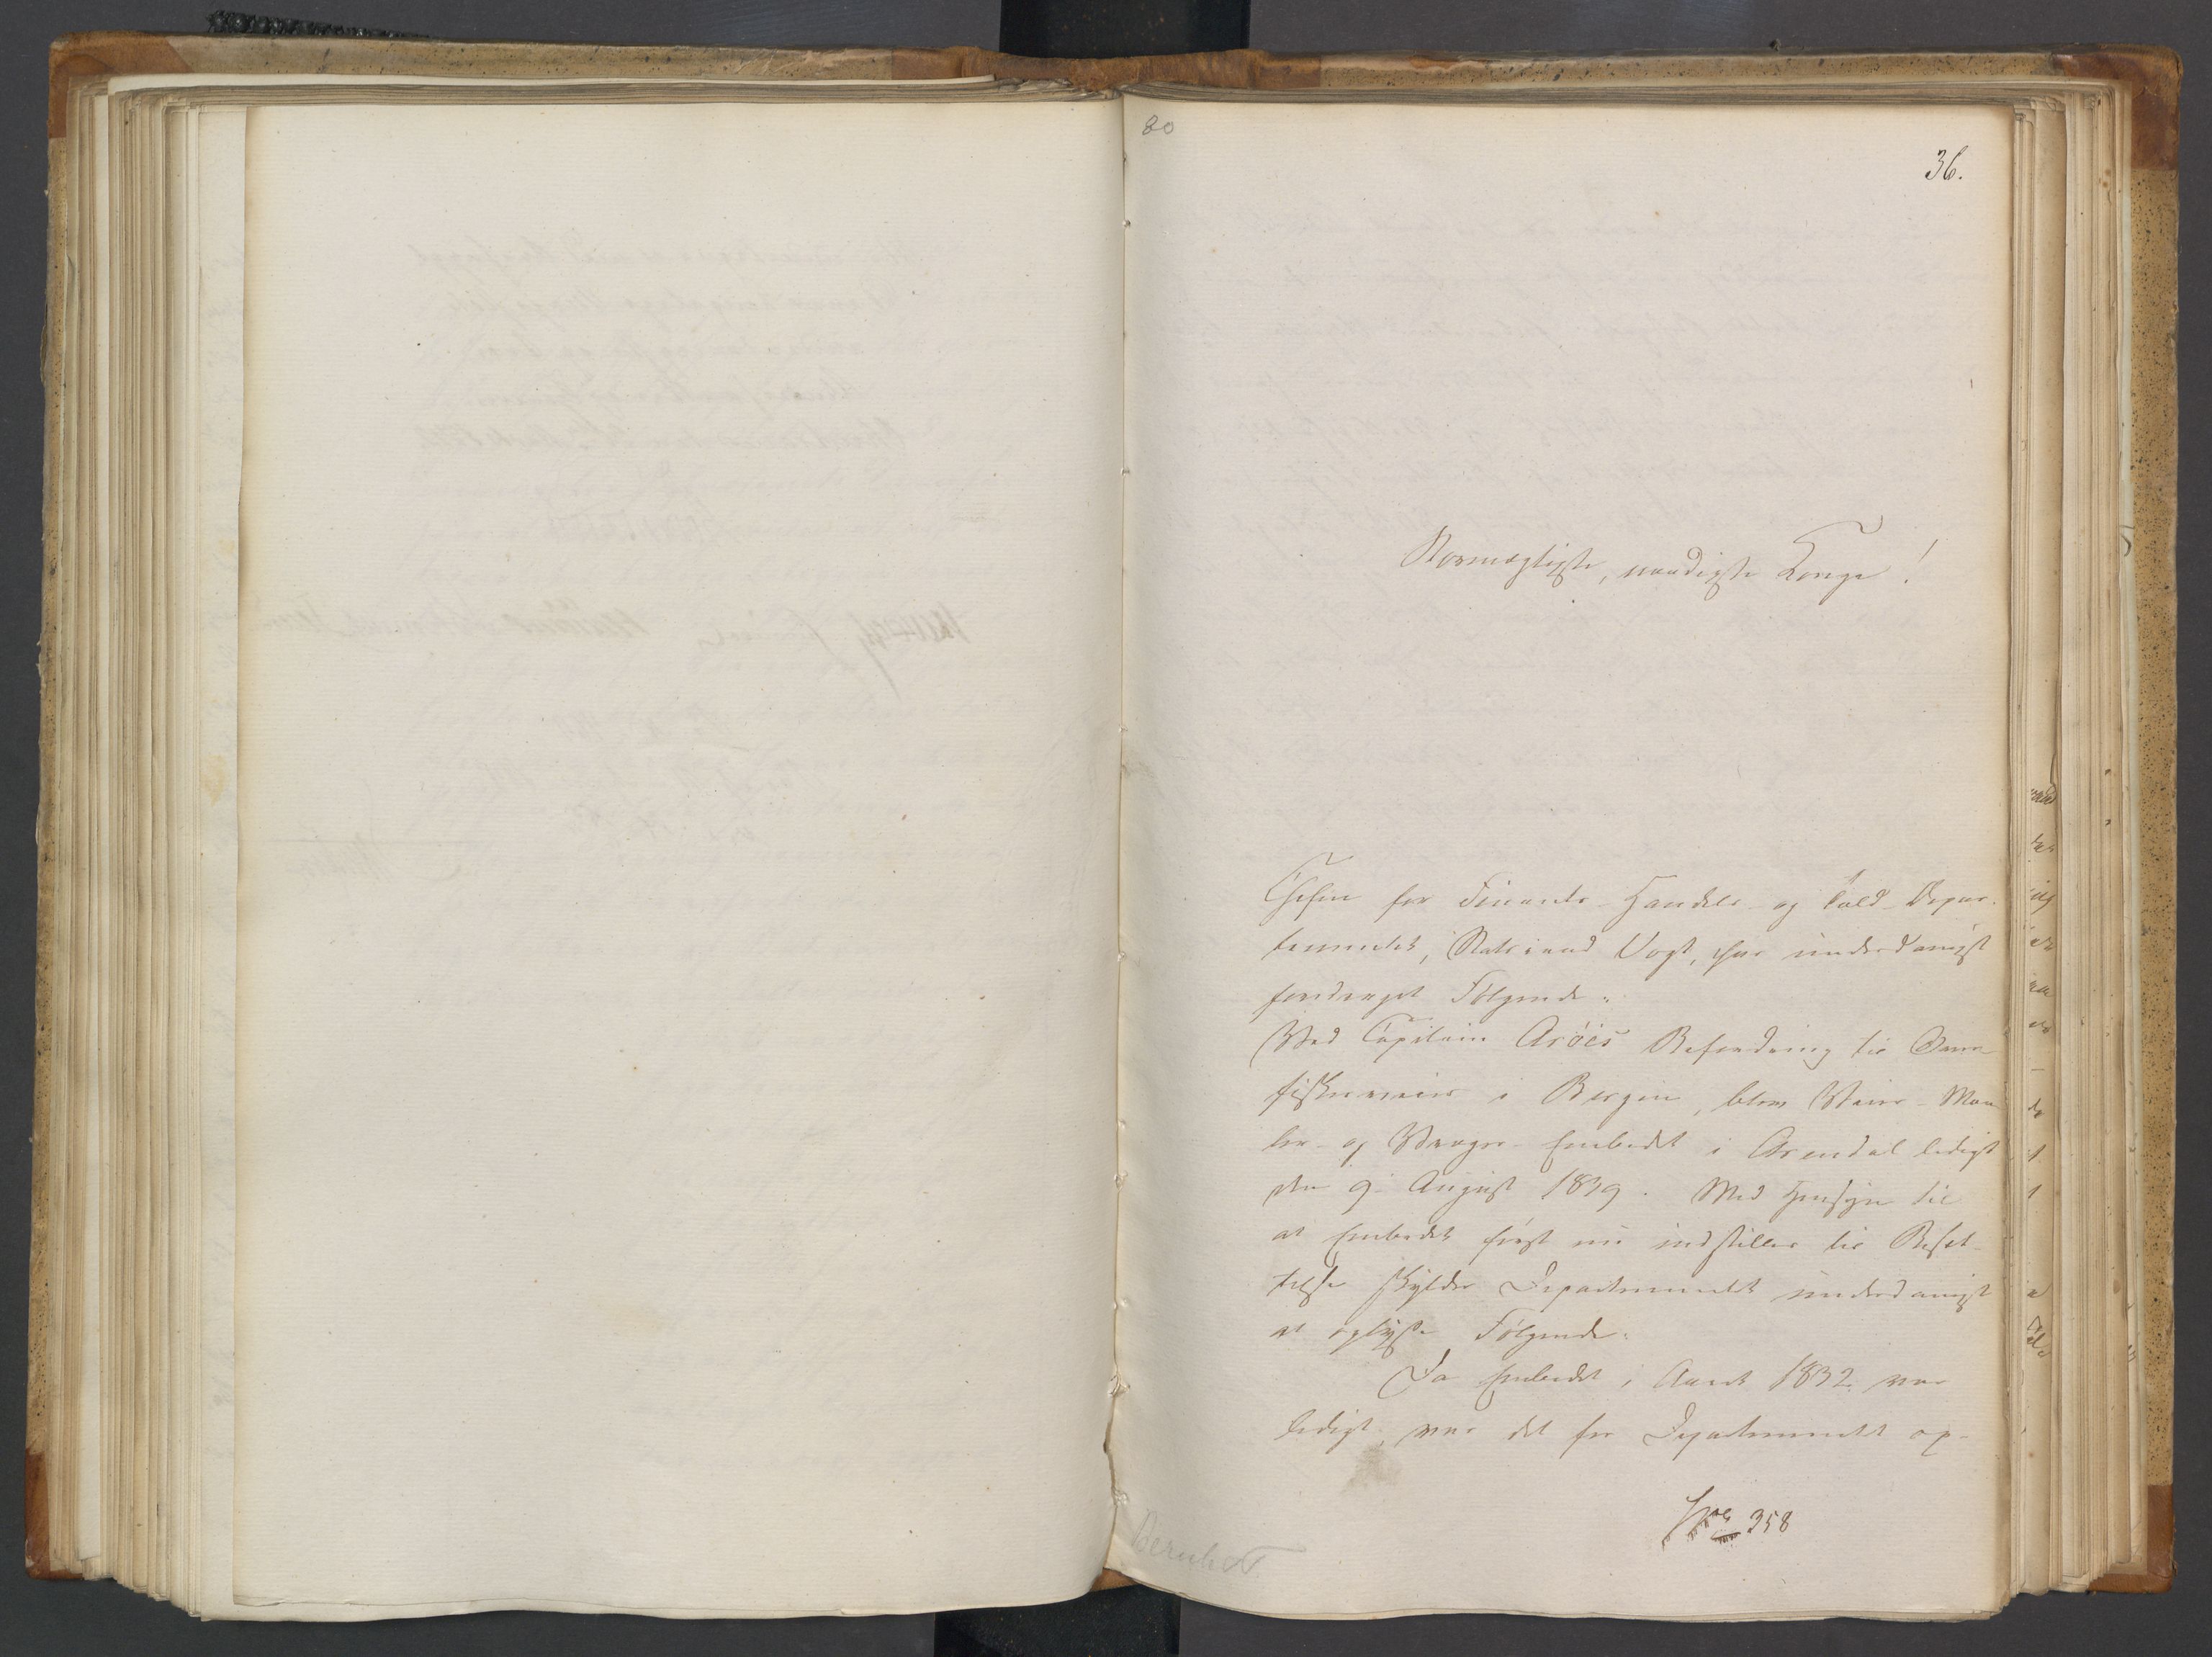 80
36.
Stormægtigste, naadigste Konge!
Chefen for Finants- Handels- og Told-Depar-
tementet, Statsraad Vogt, har underdanigst
foredraget Følgende:
Ved Capitain Arøes Befordring til
i Bergen, blev Veier- Maa-
ler- og Vrager-Embedet i Arendal ledigt
den 9 August 1839. Med Hensyn til
at Embedet først nu indstilles til Besæt-
telse skylder Departementet underdanigst
at oplyse Følgende:
Da Embedet i Aaret 1832 var
ledigt, var det for Departementet op-
358